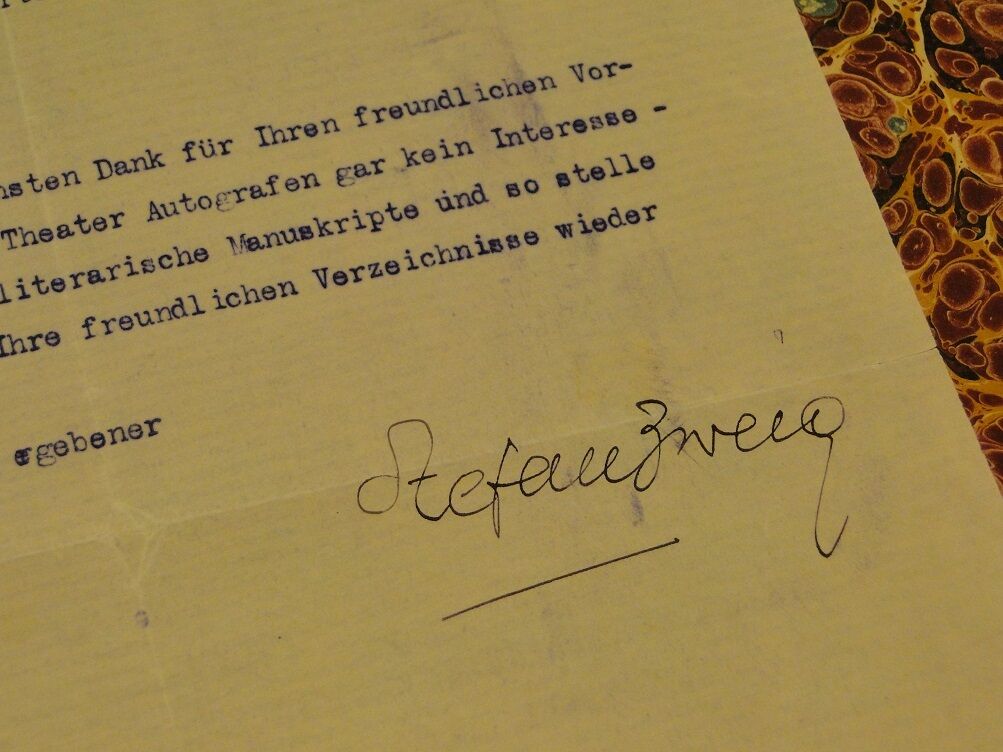 nsten Dank für Ihren freundlichen Vor-
Theater Autografen gar kein Interesse -
literarische Manuskripte und so stelle
Ihre freundlichen Verzeichnisse wieder
ergebener
Stefan Zweig